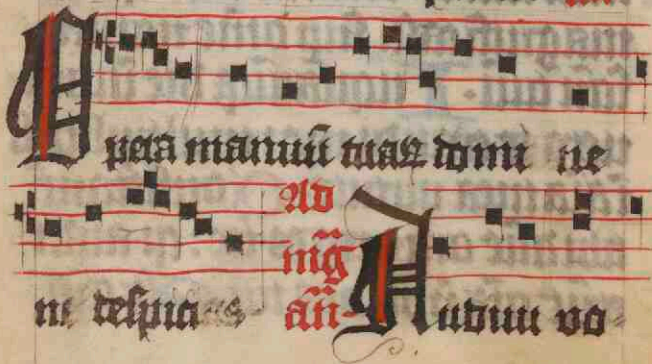 Opera manuũ tuaꝝ domi ne
ne despicias Ad
mg̃
añ Audiui vo